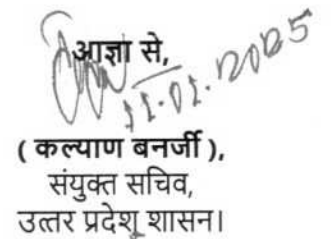 आज्ञा से,
11.01.2025
( कल्याण बनर्जी ),
संयुक्त सचिव,
उत्तर प्रदेश शासन।